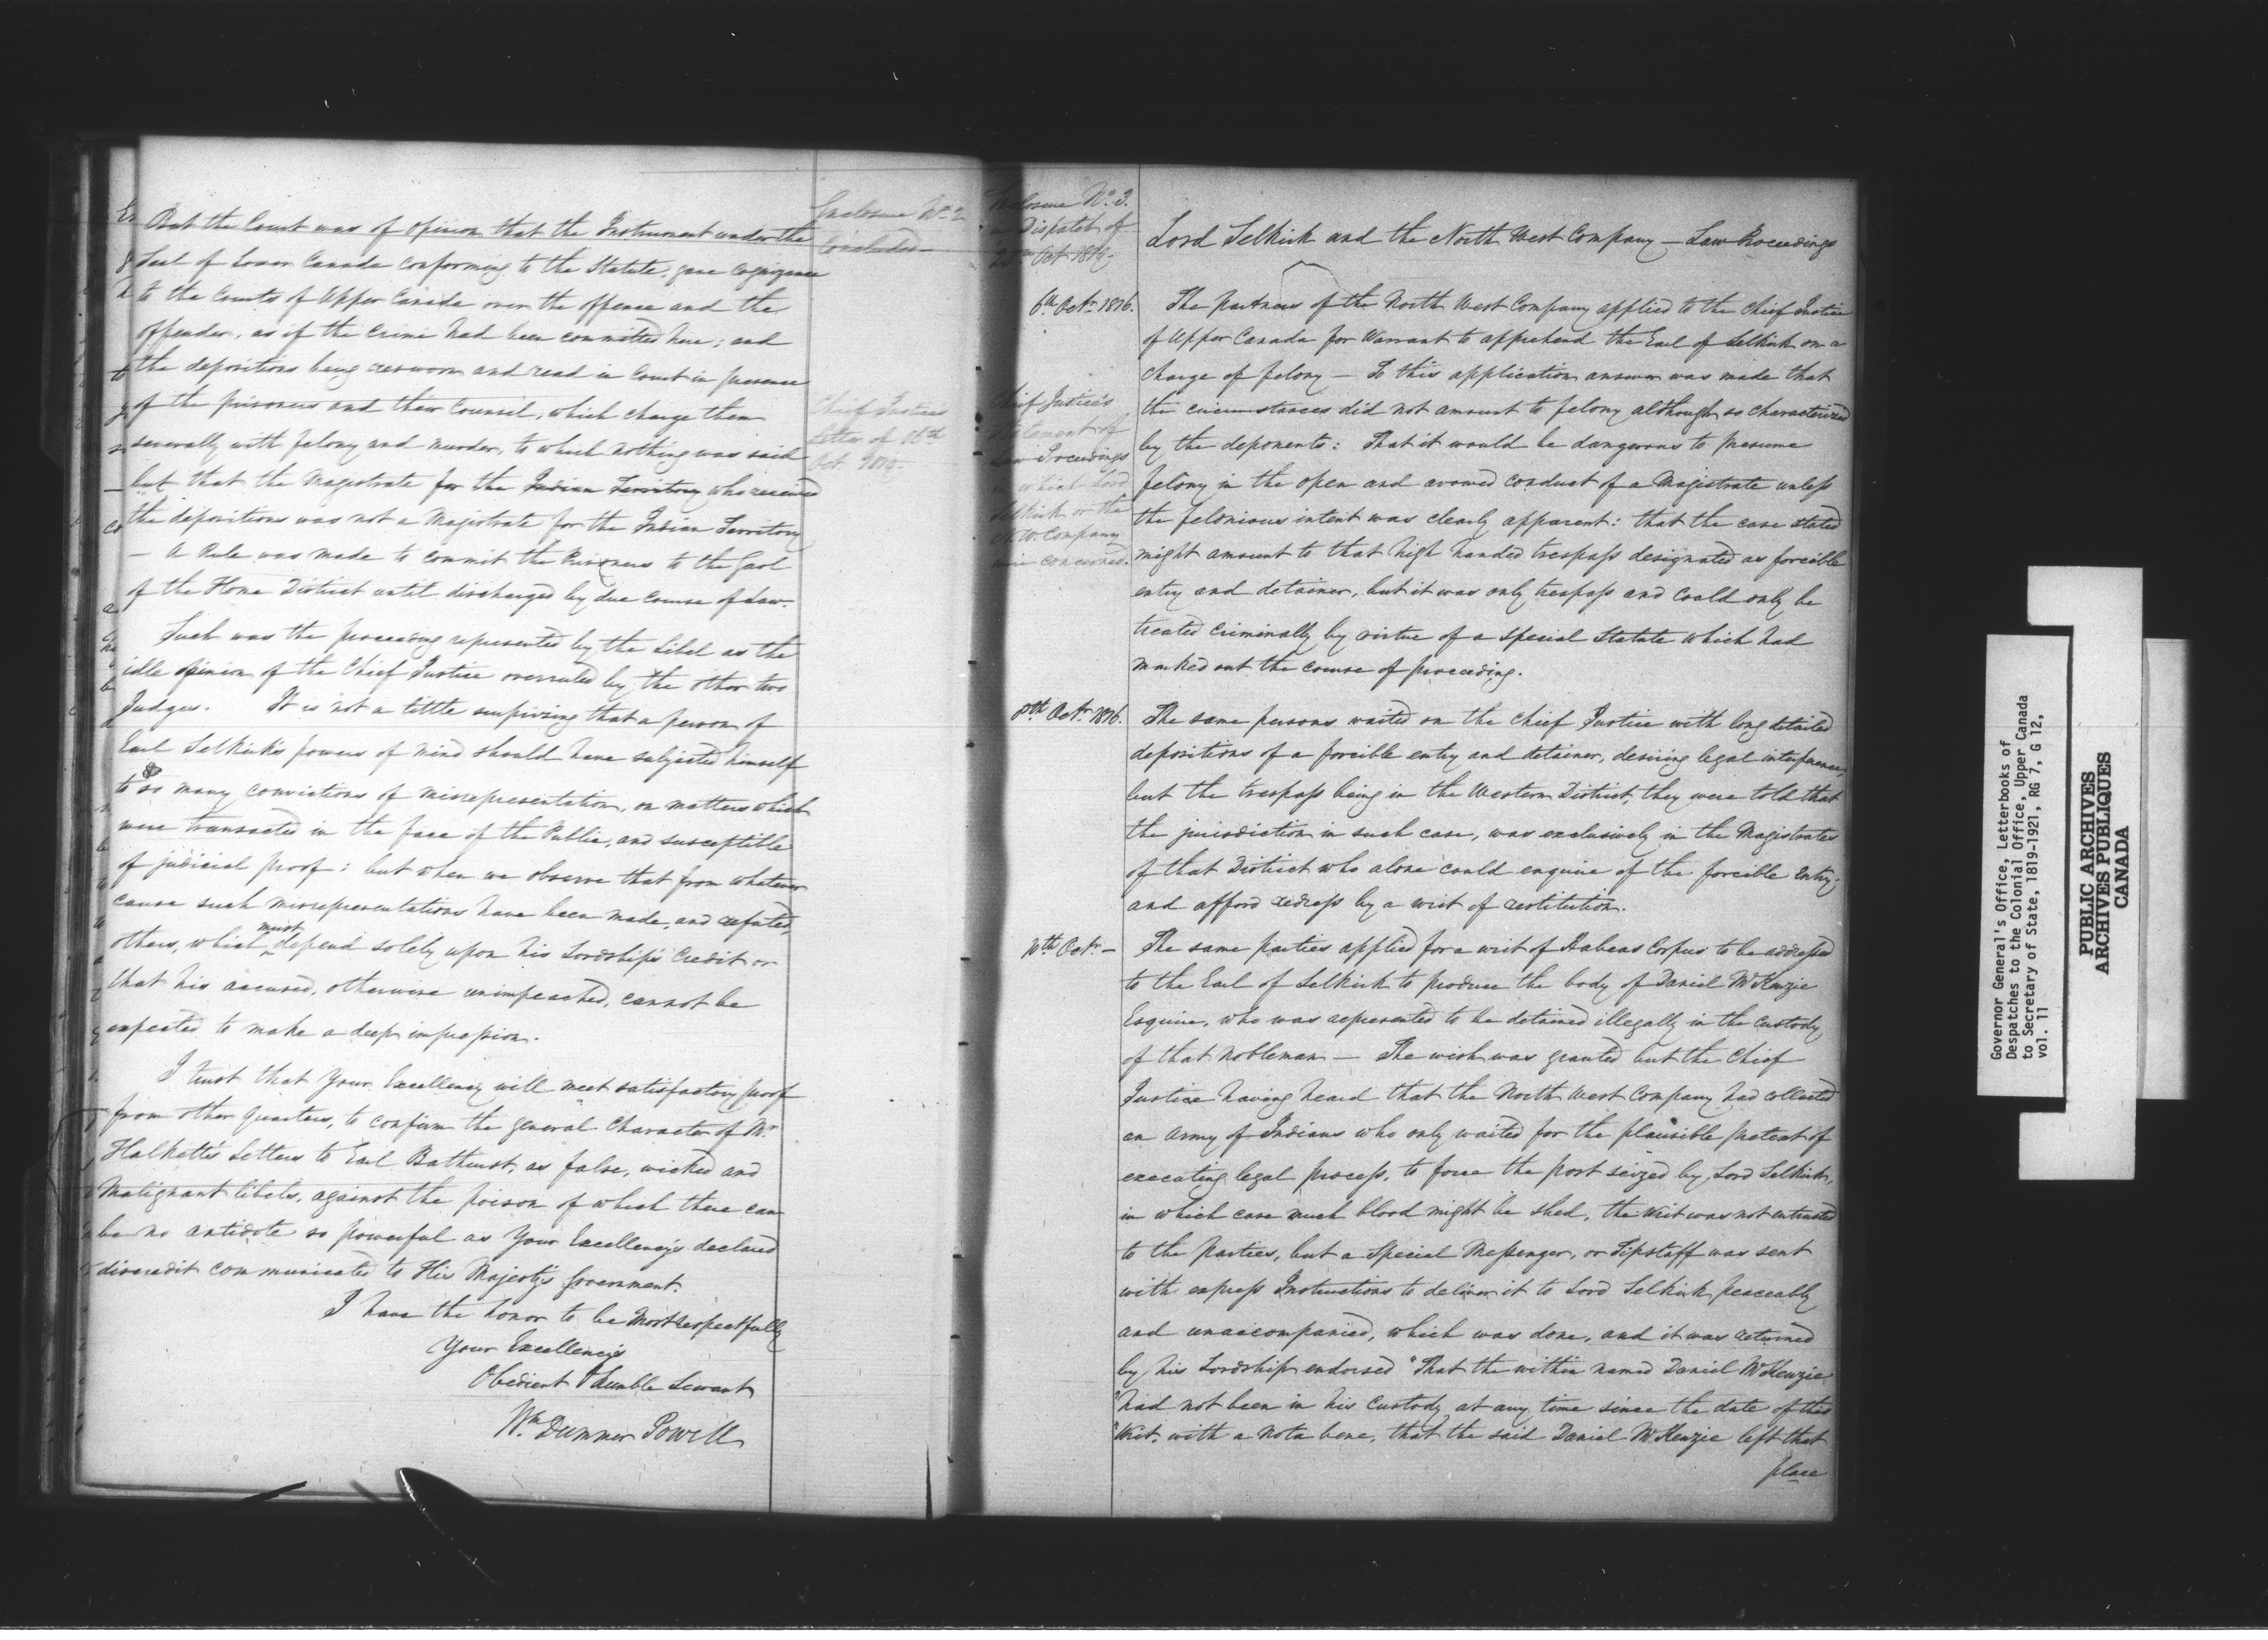 Enclosure No. 2
Concluded —
But the Court was of opinion that the Instrument under the
Seal of Lower Canada conforming to the Statute, gave cognizance
to the Courts of Upper Canada over the offence and the
offender, as if the crime had been committed here; and
the depositions being resworn and read in Court in presence
of the prisoners and their Counsel, which charge them
severally with felony and murder, to which nothing was said
but that the Magistrate for the Indian Territory who received
the depositions was not a Magistrate for the Indian Territory
— A Rule was made to commit the Prisoners to the Gaol
of the Home District until discharged by due course of Law.
Chief Justices
Letter of 16th
Oct. 1819.
Such was the proceeding represented by the Libel as the
idle opinion of the Chief Justice overruled by the other two
Judges. It is not a little surprizing that a person of
Earl Selkirk's powers of mind should have subjected himself
to so many convictions of misrepresentation, on matters which
were transacted in the face of the Public, and susceptible
of judicial proof: but when we observe that from whatever
cause such misrepresentations have been made, and refuted,
others, which must depend solely upon his Lordship's Credit or
that his accused, otherwise unimpeached, cannot be
expected to make a deep impression.
I trust that Your Excellency will meet satisfactory proof
from other quarters, to confirm the general Character of Mr
Halkett's Letters to Earl Bathurst, as false, wicked and
Malignant libels, against the poison of which there can
be no antidote so powerful as Your Excellency's declared
discredit communicated to His Majesty's Government.
I have the honor to be Most respectfully
Your Excellency's
Obedient Humble Servant
Wm Dummer Powell
Enclosure No. 3.
in Dispatch of
Oct 1819 —
Lord Selkirk and the North West Company — Law Proceedings
Chief Justice's
Statement of
Law Proceedings
in which Lord
Selkirk or the
N.W. Company
were concerned.
6th Octr 1816.
The partners of the North West Company applied to the Chief Justice
of Upper Canada for Warrant to apprehend the Earl of Selkirk on a
charge of felony — To this application answer was made that
the circumstances did not amount to felony although so characterized
by the deponents: That it would be dangerous to presume
felony in the open and avowed conduct of a Magistrate unless
the felonious intent was clearly apparent: that the case stated
might amount to that high handed trespass designated as forcible
entry and detainer, but it was only trespass and could only be
treated criminally by virtue of a special Statute which had
marked out the course of proceeding.
8th Octr 1816.
The same persons waited on the Chief Justice with long detailed
depositions of a forcible entry and detainer, desiring legal interference,
but the trespass being in the Western District, they were told that
the jurisdiction in such case, was exclusively in the Magistrates
of that District who alone could enquire of the forcible entry,
and afford redress by a writ of restitution.
10th Octr —
The same parties applied for a writ of Habeas Corpus to be addressed
to the Earl of Selkirk to produce the body of Daniel McKenzie
Esquire, who was represented to be detained illegally in the custody
of that nobleman — The wish was granted but the Chief
Justice having heard that the North West Company had collected
an army of Indians who only waited for the plausible pretext of
executing legal process, to force the post seized by Lord Selkirk,
in which case much blood might be shed, the Writ was not entrusted
to the parties, but a Special Messenger, or Tipstaff was sent
with express Instructions to deliver it to Lord Selkirk peaceably
and unaccompanied, which was done, and it was returned
by his Lordship endorsed "That the within named Daniel McKenzie
"had not been in his Custody at any time since the date of this
"Writ, with a nota bene, that the said Daniel McKenzie left that
place
Governor General's Office, Letterbooks of
Despatches to the Colonial Office, Upper Canada
to Secretary of State, 1819-1921, RG 7, G 12,
vol. 11
PUBLIC ARCHIVES
ARCHIVES PUBLIQUES
CANADA